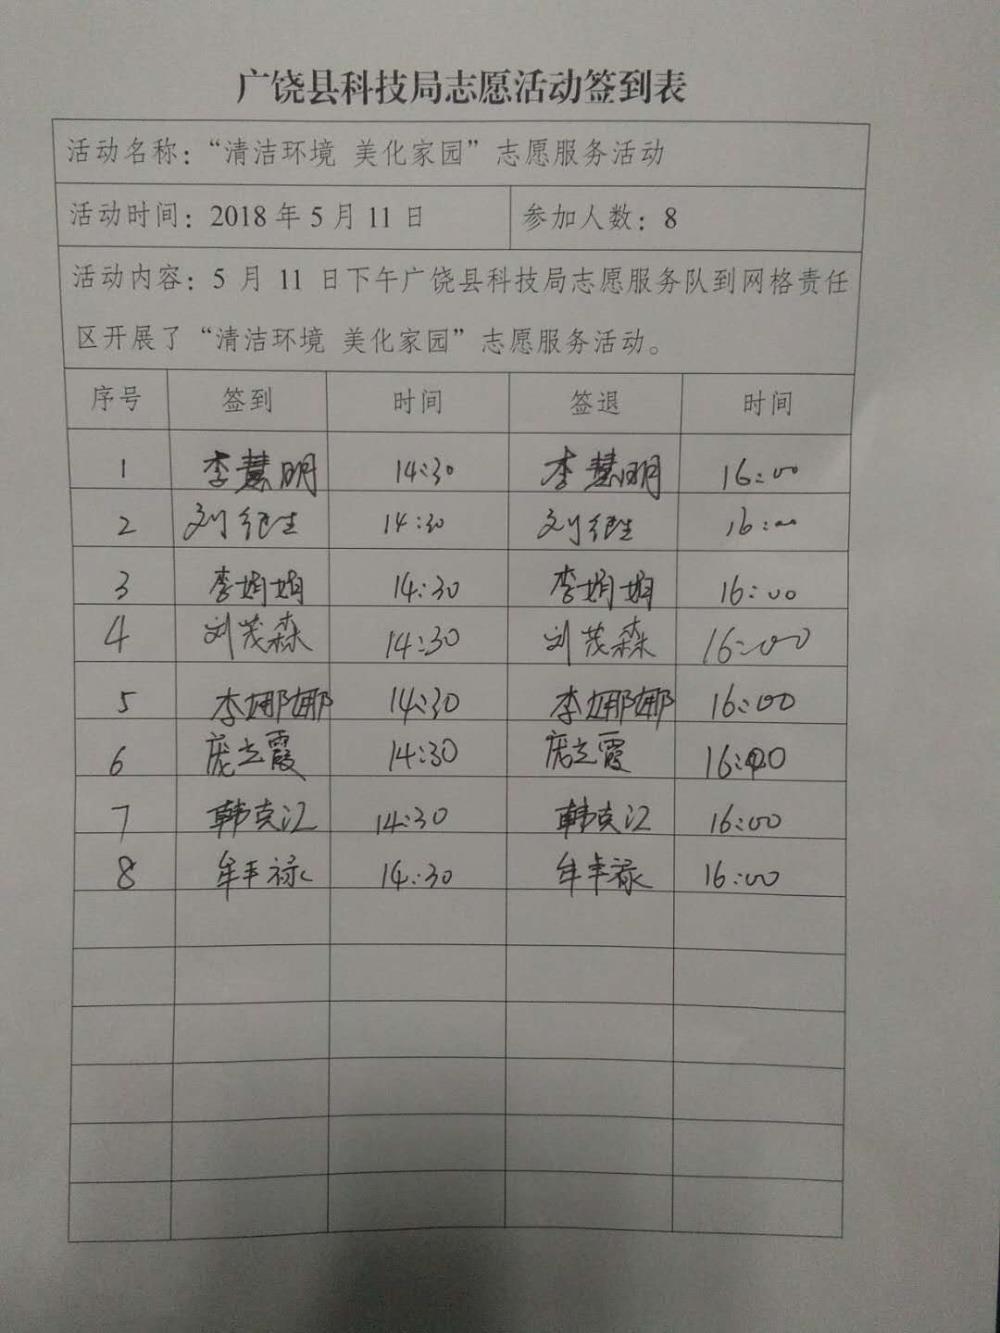 广饶县科技局志愿活动签到表
活动名称：“清洁环境 美化家园”志愿服务活动
活动时间：2018 年 5 月 11 日 参加人数：8
活动内容：5 月 11 日下午广饶县科技局志愿服务队到网格责任
区开展了“清洁环境 美化家园”志愿服务活动。
序号 签到 时间 签退 时间
1 李慧明 14:30 李慧明 16:00
2 刘 14:30 刘 16:00
3 李娟娟 14:30 李娟娟 16:00
4 刘茂森 14:30 刘茂森 16:00
5 李娜娜 14:30 李娜娜 16:00
6 庞立霞 14:30 庞立霞 16:00
7 韩克江 14:30 韩克江 16:00
8 牟丰禄 14:30 牟丰禄 16:00